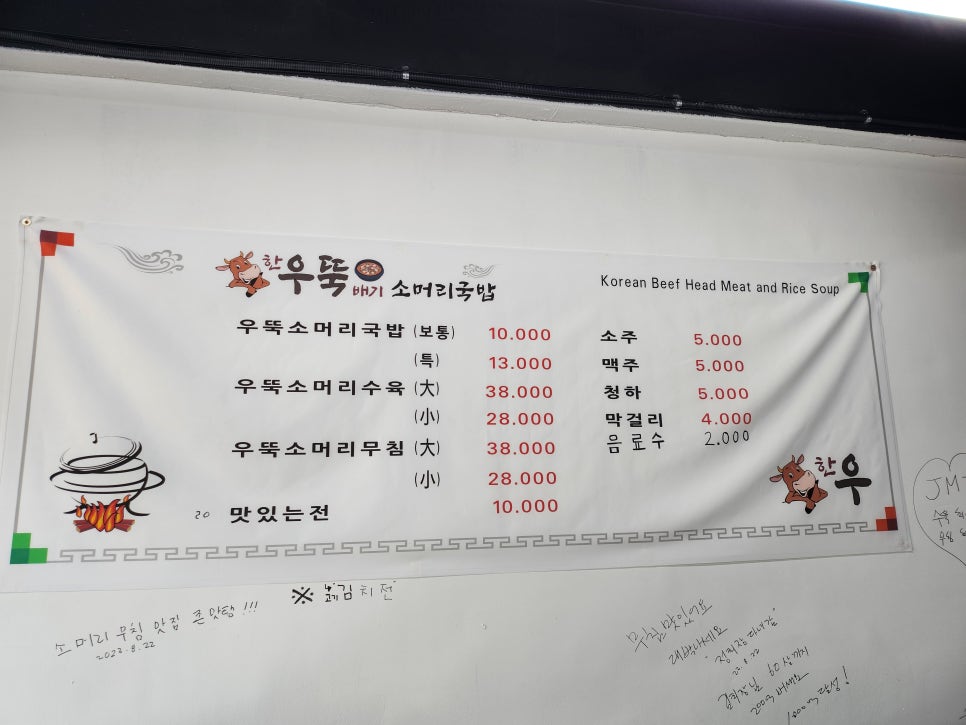 한우뚝배기 소머리국밥
Korean Beef Head Meat and Rice Soup
우뚝소머리국밥 (보통) 10.000
(특) 13.000
우뚝소머리수육 (大) 38.000
(小) 28.000
우뚝소머리무침 (大) 38.000
(小) 28.000
20 맛있는전 10.000
소주 5.000
맥주 5.000
청하 5.000
막걸리 4.000
음료수 2.000
한우
※ 고기김치전
소머리 무침 맛집 존맛탱!!!
2023.8.22
무침 맛있어요
대박나세요
"정회장 다녀감"
23.8.22
김회장님 60살까지
200억 버세요
JMT
수육
무침